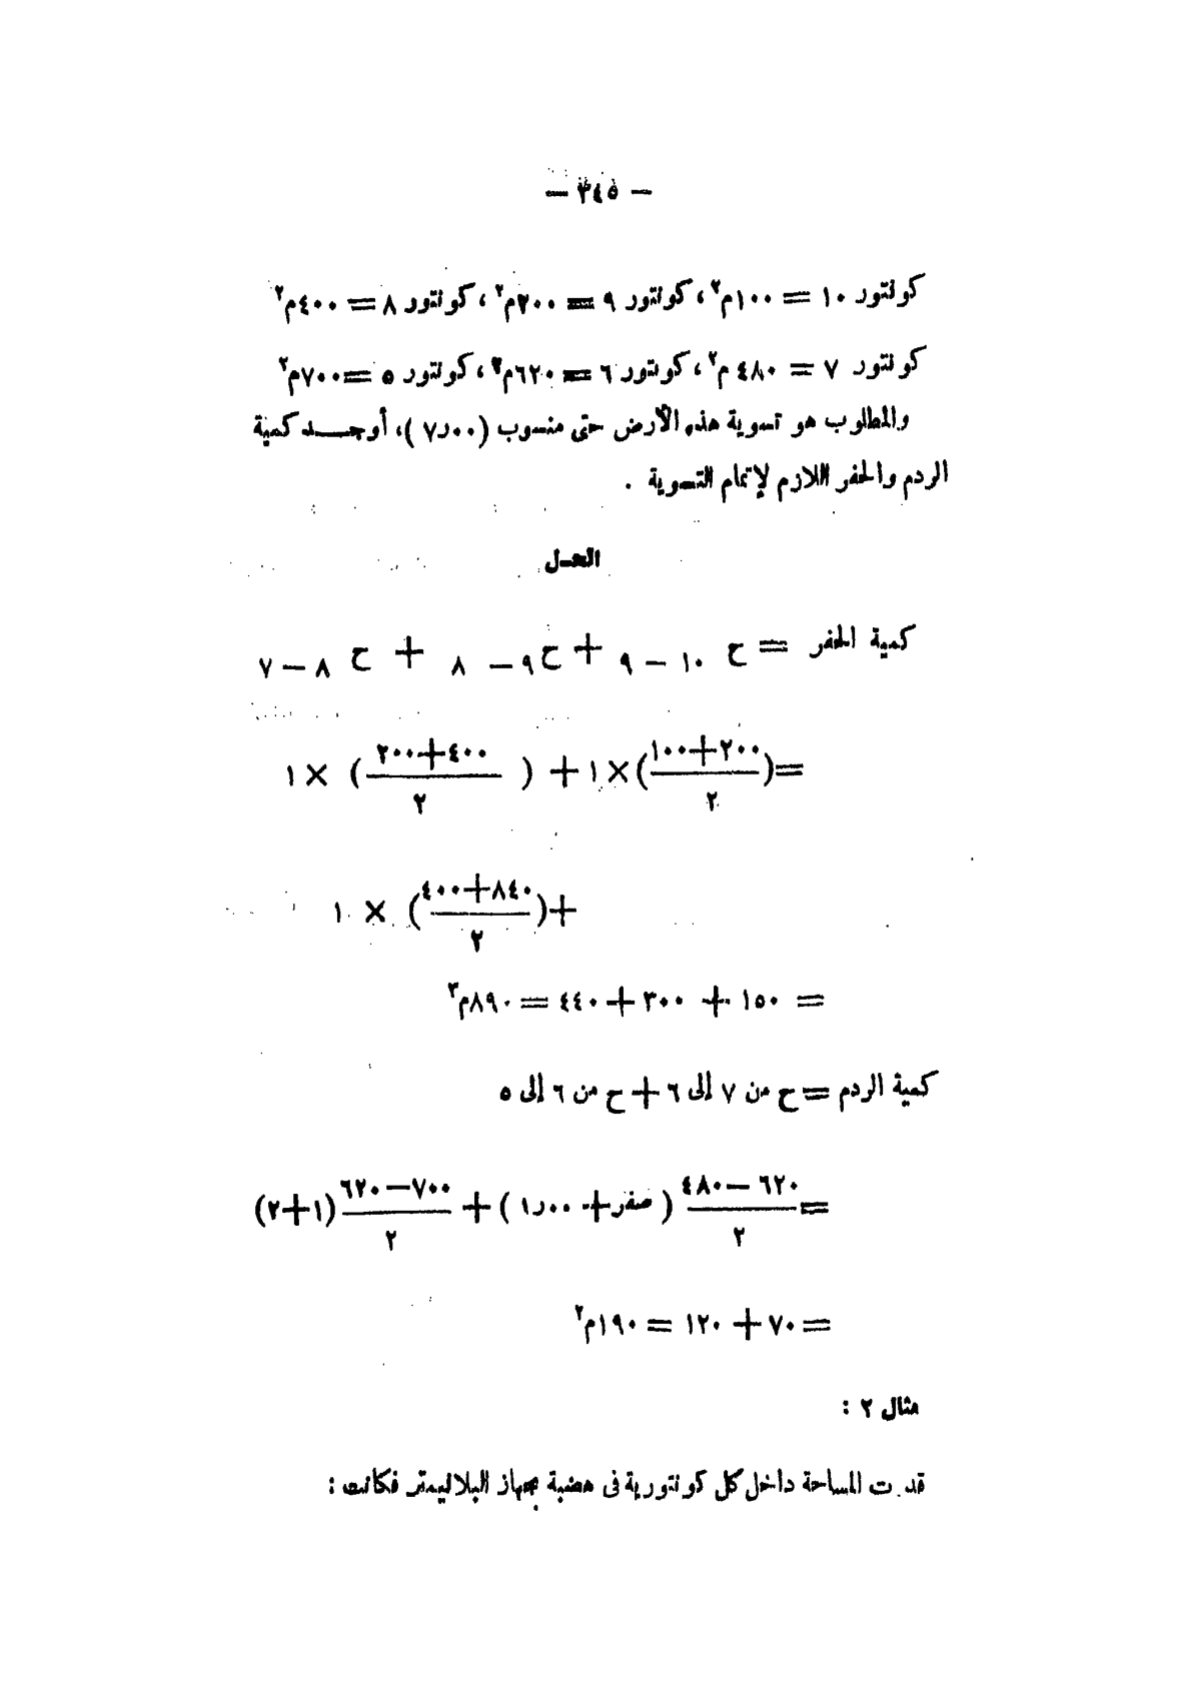 — ٣٤٥ —
كونتور ١٠ = ١٠٠م٢، كونتور ٩ = ٢٠٠م٢، كونتور ٨ = ٤٠٠م٢
كونتور ٧ = ٤٨٠ م٢، كونتور ٦ = ٦٢٠م٢، كونتور ٥ = ٧٠٠م٢
والمطلوب هو تسوية هذه الأرض حتى منسوب (٠٠ر٧)، أوجد كمية
الردم والحفر اللازم لإتمام التسوية .
الحل
كمية الحفر = ح ١٠ — ٩ + ح ٩ — ٨ + ح ٨ — ٧
= (٢٠٠+١٠٠ / ٢) × ١ + (٤٠٠+٢٠٠ / ٢) × ١
+ (٨٤٠+٤٠٠ / ٢) × ١
= ١٥٠ + ٣٠٠ + ٤٤٠ = ٨٩٠م٣
كمية الردم = ح من ٧ إلى ٦ + ح من ٦ إلى ٥
= ٦٢٠ — ٤٨٠ / ٢ (صفر + ٠٠ر١) + ٧٠٠ — ٦٢٠ / ٢ (١+٢)
= ٧٠ + ١٢٠ = ١٩٠م٢
مثال ٢ :
المساحة داخل كل كونتورية فى هضبة بجهاز البلانيمتر فكانت :